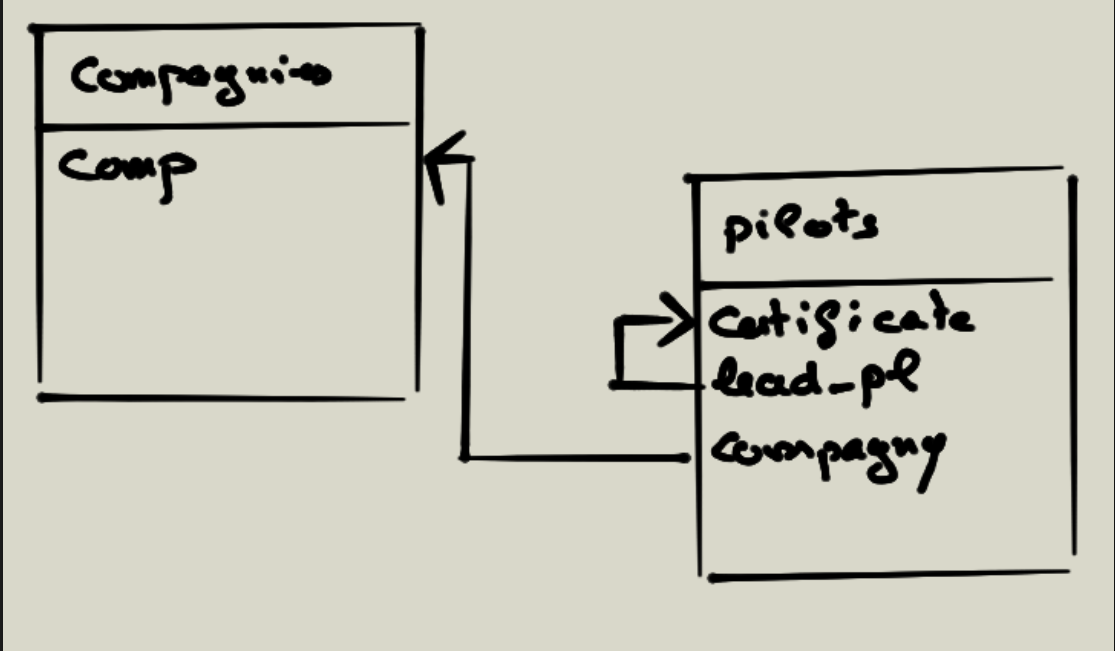 Compagnies
Comp
pilots
Certificate
lead_pl
Compagny